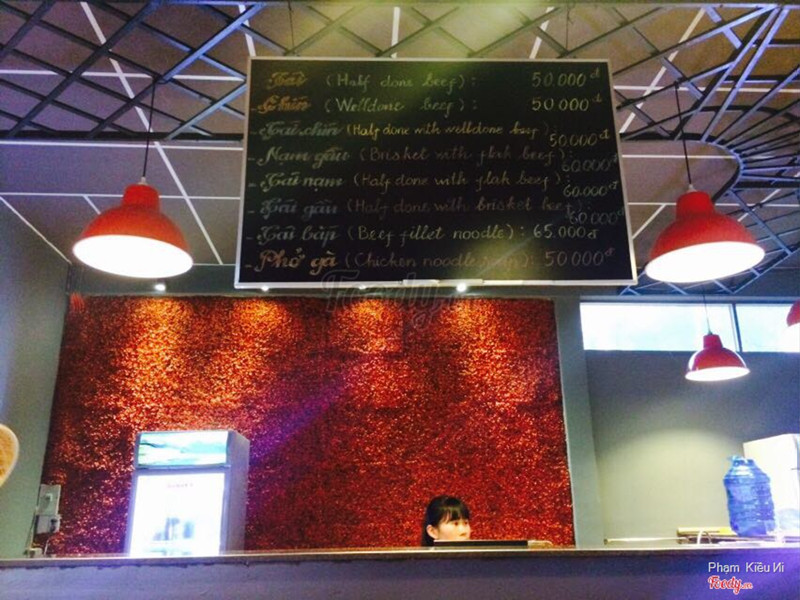 Tái (Half done beef): 50.000đ
Chín (Welldone beef): 50.000đ
- Tái chín (Half done with welldone beef): 50.000đ
- Nạm gầu (Brisket with flak beef): 60.000đ
- Tái nạm (Half done with flak beef): 60.000đ
- Tái gầu (Half done with brisket beef): 60.000đ
- Tái bắp (Beef fillet noodle): 65.000đ
- Phở gà (Chicken noodle soup): 50.000đ
Foody.vn
Phạm Kiều Ni
Foody.vn